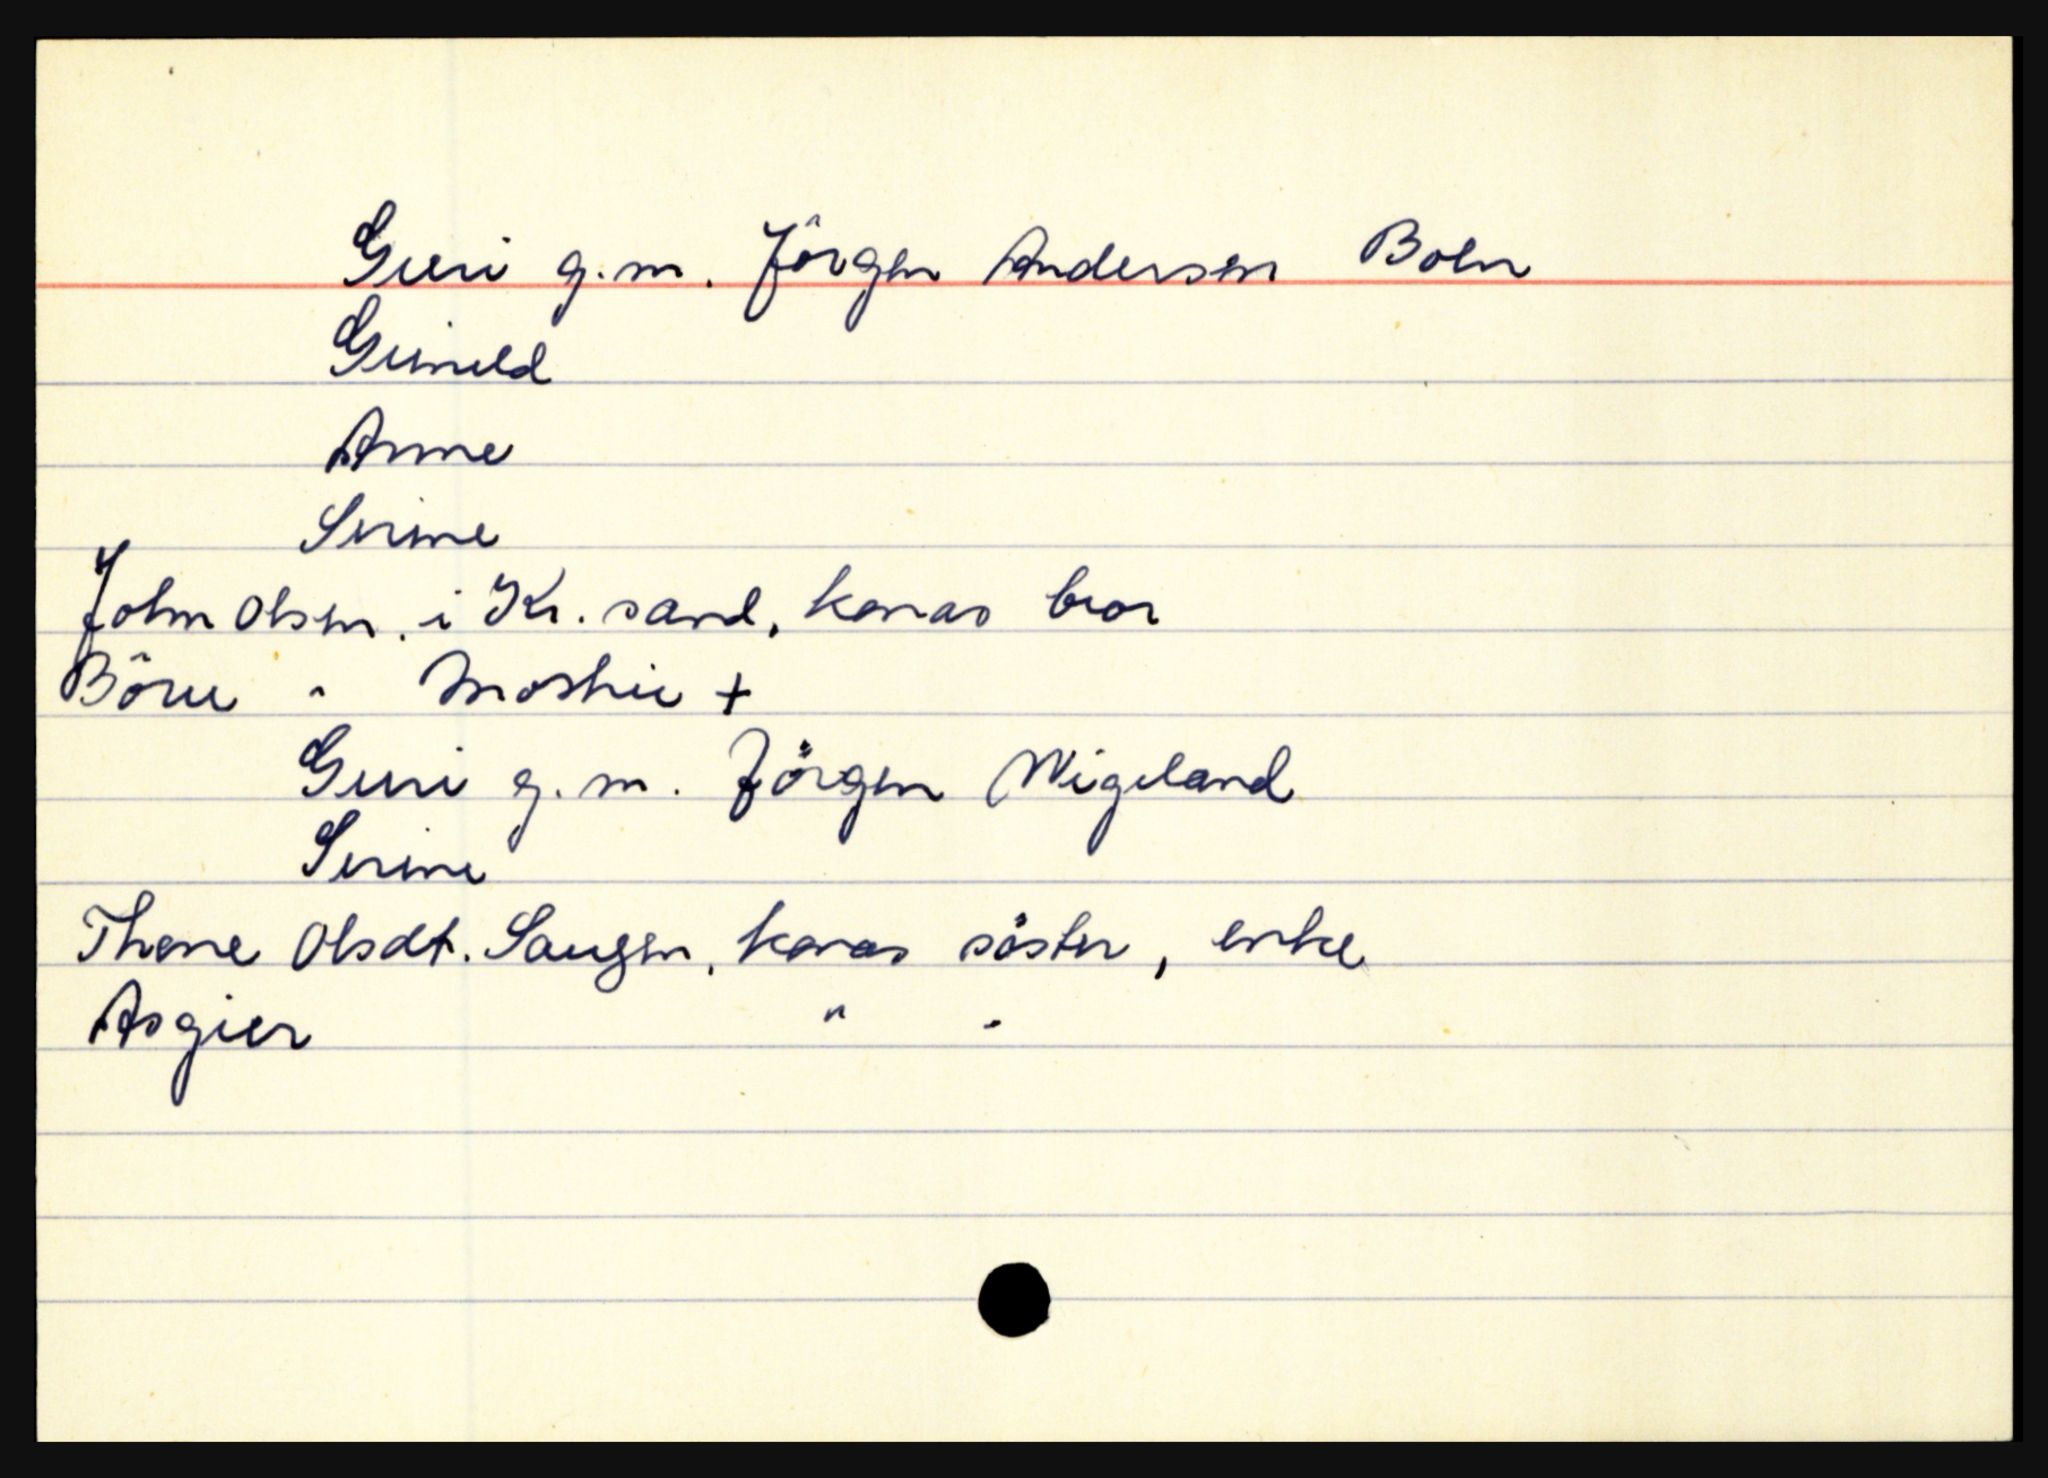 Guri g.m. Jörgen Andersen Boln
Guneld
Anne
Serine
John Olsen. i Kr. sand, konas bror
Böru " Moshie +
Guri g.m. Jörgen Wigeland
Serine
Thore Olsdt. Saugen, konas söster, enke
Asgier " "